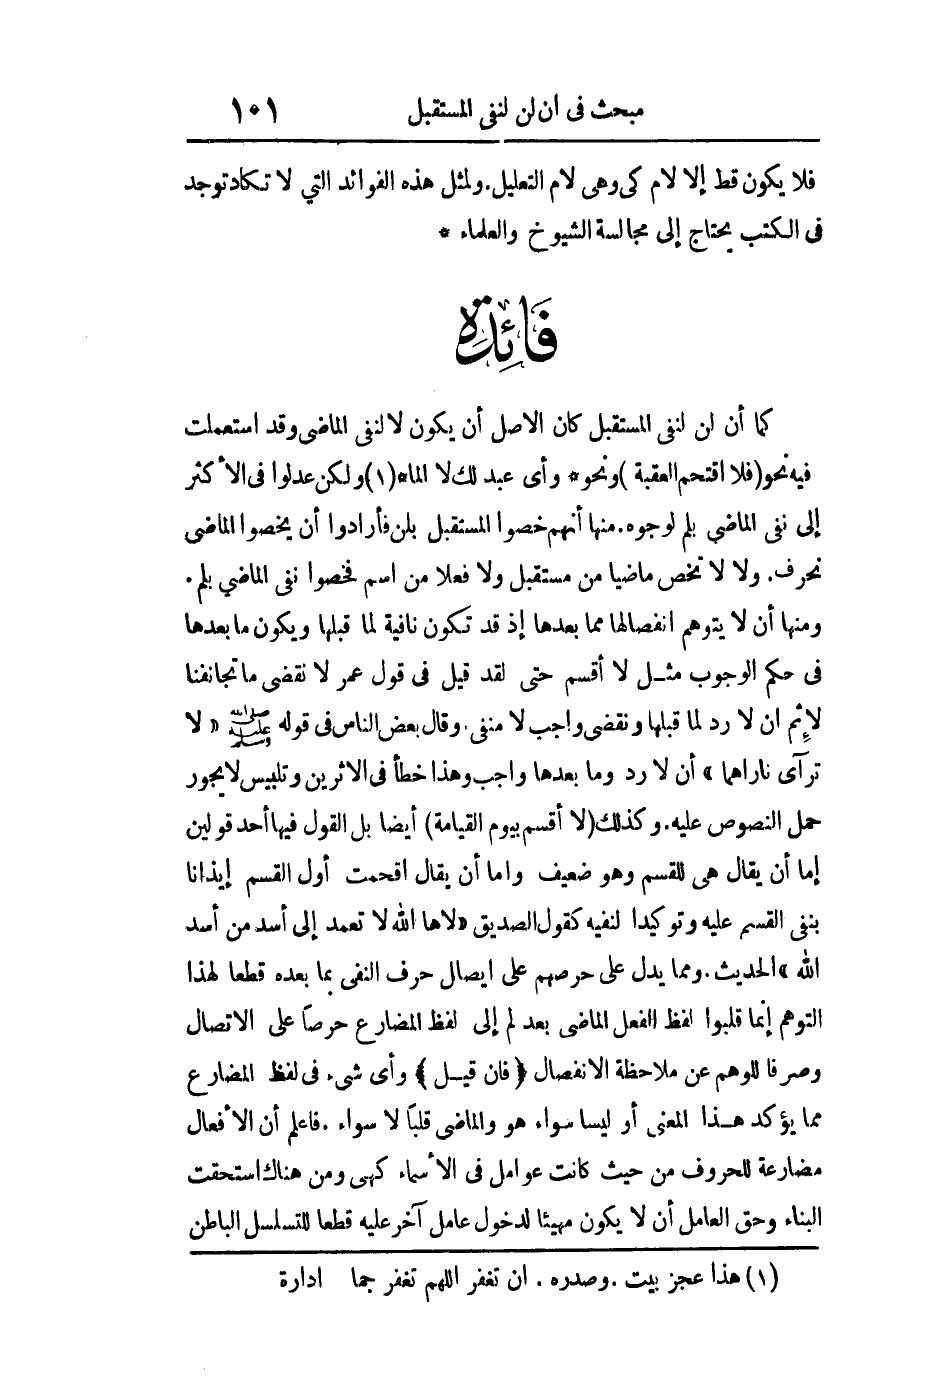 مبحث فى ان لن لنفي المستقبل ١٠١
فلا يكون قط إلا لام كى وهى لام التعليل . ولمثل هذه الفوائد التي لا تكاد توجد
فى الكتب يحتاج إلى مجالسة الشيوخ والعلماء *
فَائِدة
كما أن لن لنفى المستقبل كان الاصل أن يكون لا لنفى الماضى وقد استعملت
فيه نحو (فلا اقتحم العقبة) ونحو * وأى عبد لك لا الما * (١) ولكن عدلوا فى الأكثر
إلى نفى الماضي بلم لوجوه . منها أنهم خصوا المستقبل بلن فأرادوا أن يخصوا الماضى
بحرف . ولا لا تخص ماضيا من مستقبل ولا فعلا من اسم فخصوا نفى الماضي بلم .
ومنها أن لا يتوهم انفصالها مما بعدها إذ قد تكون نافية لما قبلها ويكون ما بعدها
فى حكم الوجوب مثل لا أقسم حتى لقد قيل فى قول عمر لا نقضى ما تجانفنا
لإثم ان لا رد لما قبلها ونقضى واجب لا منفى . وقال بعض الناس فى قوله ﷺ « لا
ترآى ناراهما » أن لا رد وما بعدها واجب وهذا خطأ فى الاثرين وتلبيس لا يجور
حمل النصوص عليه . وكذلك (لا أقسم بيوم القيامة) أيضا بل القول فيها أحد قولين
إما أن يقال هى للقسم وهو ضعيف واما أن يقال اقحمت أول القسم إيذانا
بنفى القسم عليه وتوكيدا لنفيه كقول الصديق «لاها الله لا تعمد إلى أسد من أسد
الله » الحديث . ومما يدل على حرصهم على ايصال حرف النفى بما بعده قطعا لهذا
التوهم إنما قلبوا لفظ الفعل الماضى بعد لم إلى لفظ المضارع حرصاً على الاتصال
وصرفا للوهم عن ملاحظة الانفصال ﴿ فان قيل ﴾ وأى شىء فى لفظ المضارع
مما يؤكد هذا المعنى أو ليسا سواء هو والماضى قلباً لا سواء . فاعلم أن الأفعال
مضارعة للحروف من حيث كانت عوامل فى الأسماء كهى ومن هناك استحقت
البناء وحق العامل أن لا يكون مهيئا لدخول عامل آخر عليه قطعا للتسلسل الباطن
(١) هذا عجز بيت . وصدره . ان تغفر اللهم تغفر جما ادارة